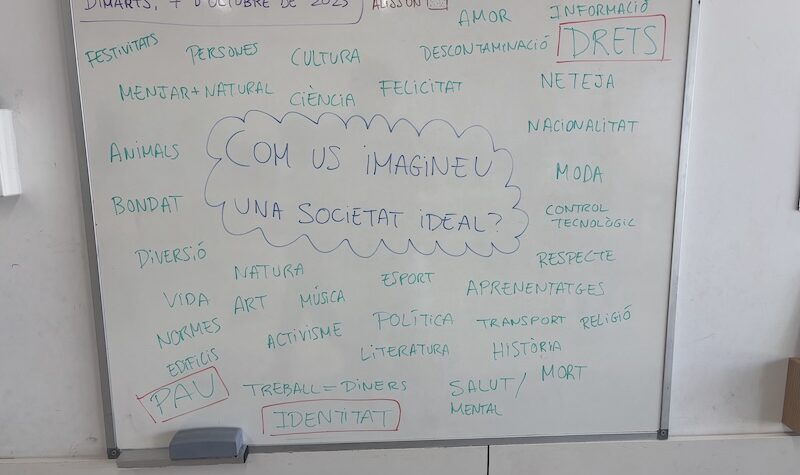 DIMARTS, 7 D'OCTUBRE DE 2025
ALISSON
AMOR
INFORMACIÓ
FESTIVITATS
PERSONES
CULTURA
DESCONTAMINACIÓ
DRETS
MENJAR + NATURAL
CIÈNCIA
FELICITAT
NETEJA
NACIONALITAT
ANIMALS
COM US IMAGINEU
UNA SOCIETAT IDEAL?
MODA
BONDAT
CONTROL
TECNOLÒGIC
DIVERSIÓ
RESPECTE
NATURA
ESPORT
APRENENTATGES
VIDA
ART
MÚSICA
NORMES
ACTIVISME
POLÍTICA
TRANSPORT
RELIGIÓ
EDIFICIS
LITERATURA
HISTÒRIA
MORT
PAU
TREBALL = DINERS
SALUT/
MENTAL
IDENTITAT